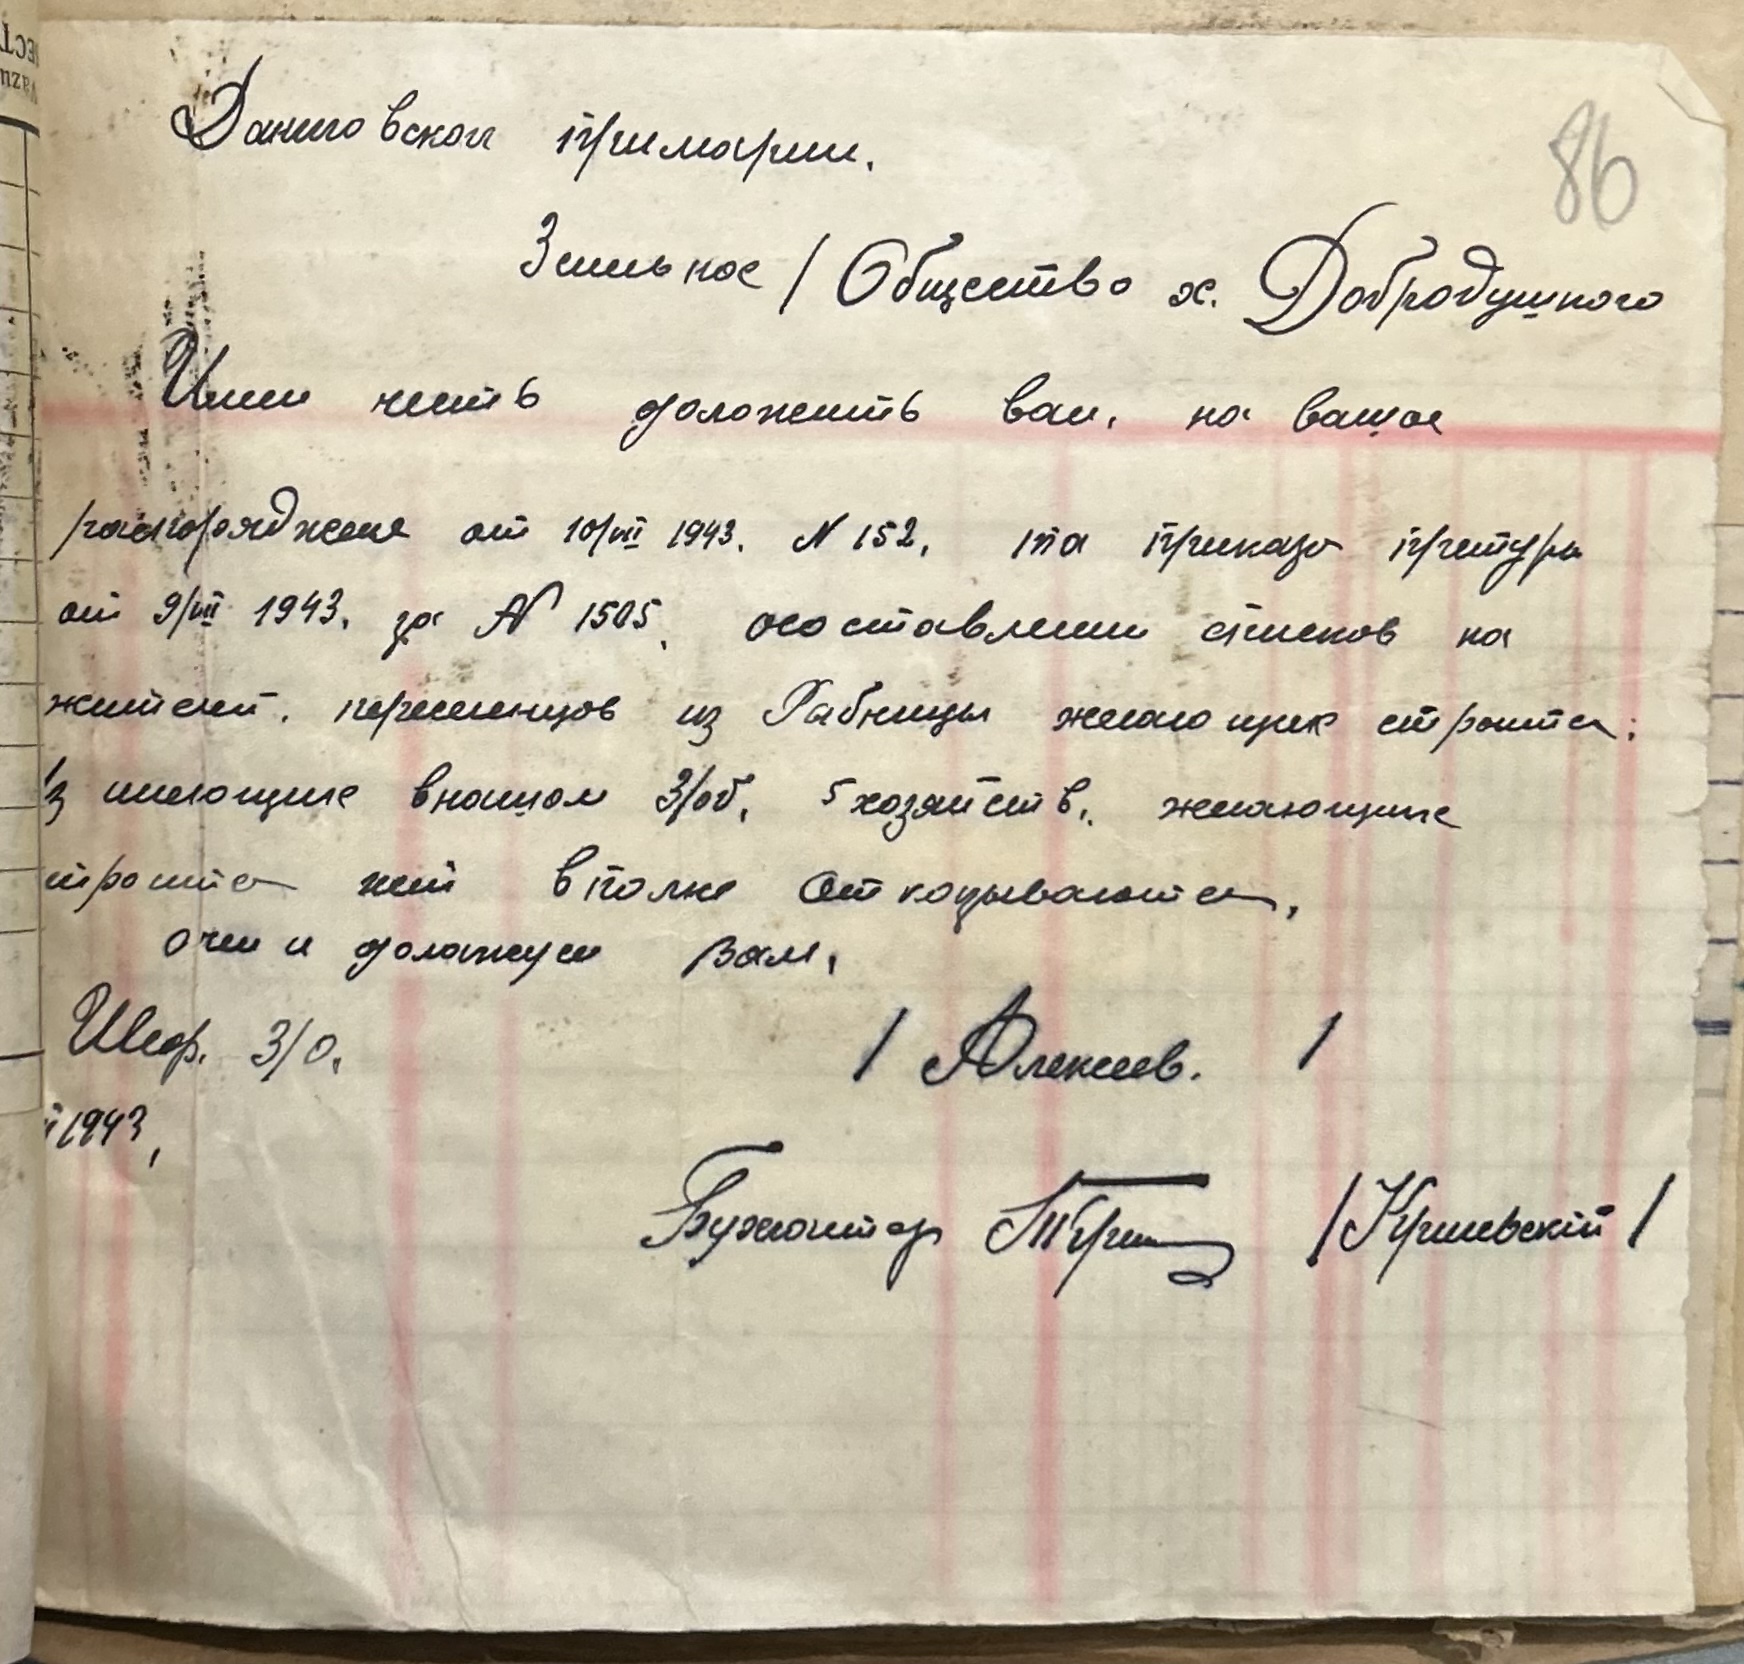 86
Даниловской примарии.
Земельное / Общество х. Добродушного
Имеем честь доложить вам, на вашое
распоряджение от 10/VIII 1943. N 152. та приказа претуры
от 9/VIII 1943. за N 1505. осоставлении списков на
жителей. переселенцов из Рабницы желающих строится.
из имеющихе внашом З/об. 5 хозяйств. желающихе
строится нет вполне откозываются,
очем и доложуем Вам,
Шеф. З/О. / Алексеев. /
1943,
Бухгалтер /Кришевский/